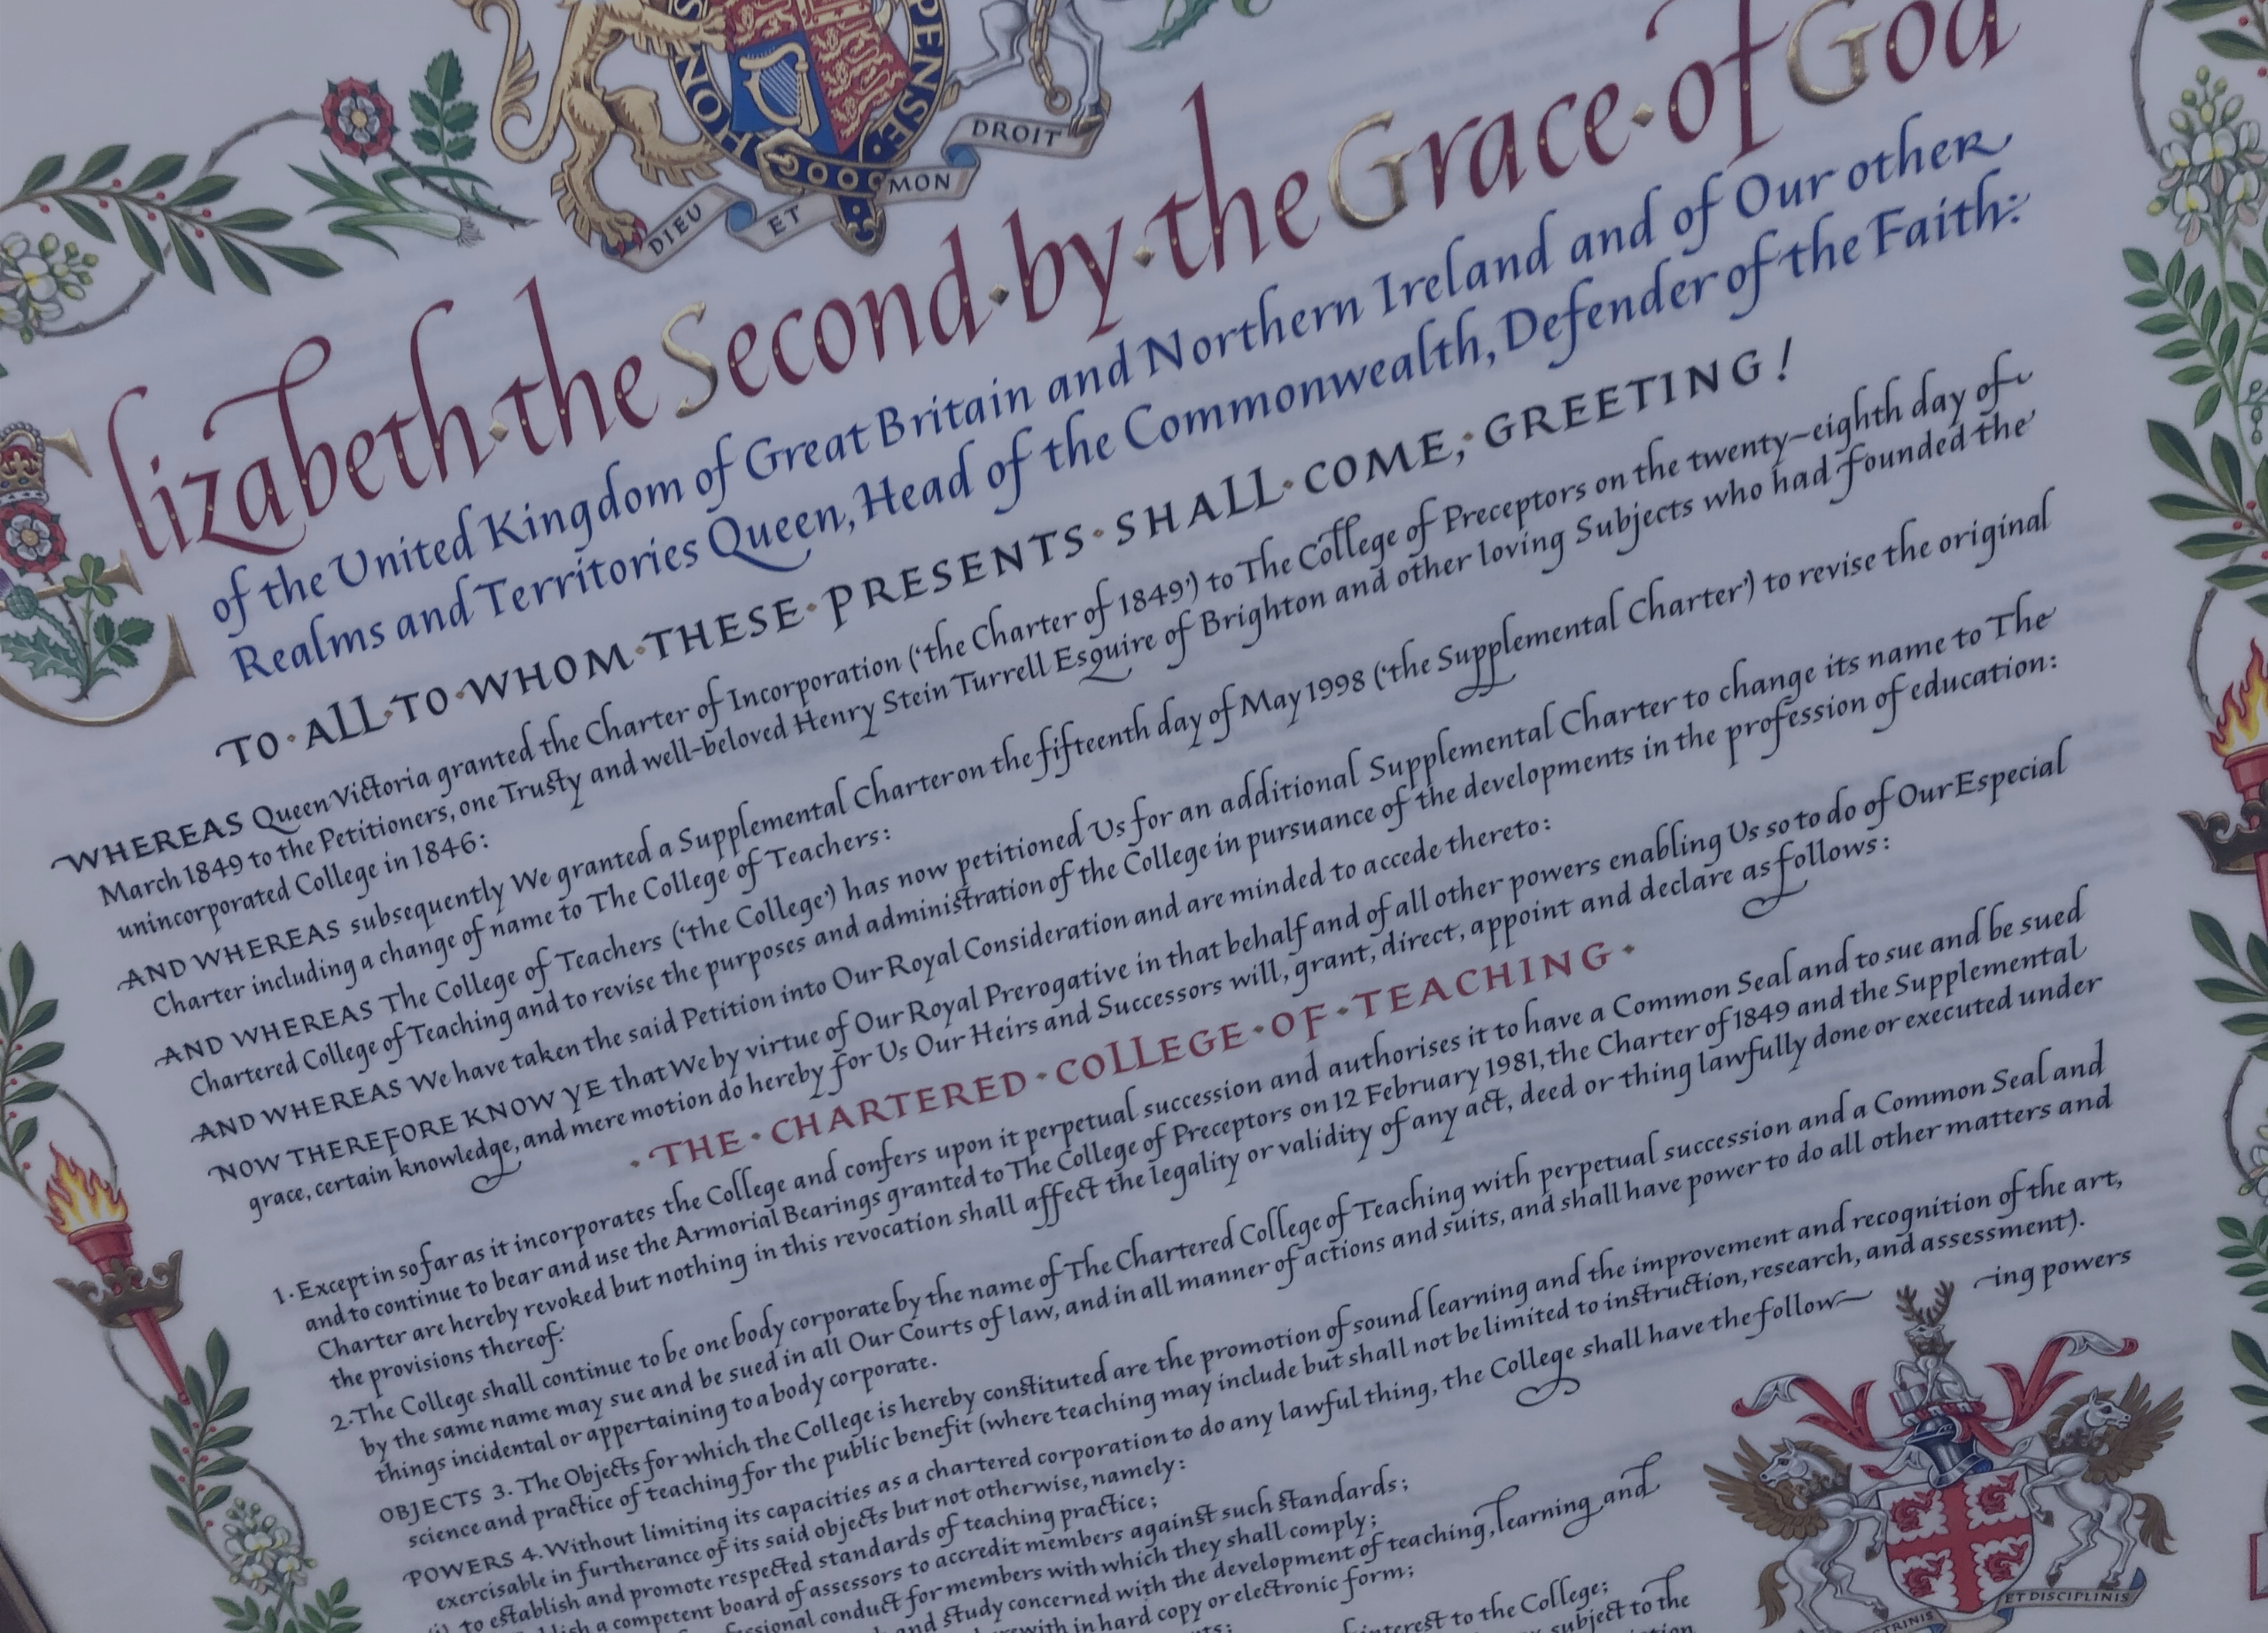 HON
PENSE
DIEU ET MON DROIT
Elizabeth·the·Second·by·the·Grace·of·God
of the United Kingdom of Great Britain and Northern Ireland and of Our other
Realms and Territories Queen, Head of the Commonwealth, Defender of the Faith:
TO·ALL·TO·WHOM·THESE·PRESENTS·SHALL·COME, GREETING!
WHEREAS Queen Victoria granted the Charter of Incorporation ('the Charter of 1849') to The College of Preceptors on the twenty-eighth day of
March 1849 to the Petitioners, one Trusty and well-beloved Henry Stein Turrell Esquire of Brighton and other loving Subjects who had founded the
unincorporated College in 1846:
AND WHEREAS subsequently We granted a Supplemental Charter on the fifteenth day of May 1998 ('the Supplemental Charter') to revise the original
Charter including a change of name to The College of Teachers:
AND WHEREAS The College of Teachers ('the College') has now petitioned Us for an additional Supplemental Charter to change its name to The
Chartered College of Teaching and to revise the purposes and administration of the College in pursuance of the developments in the profession of education:
AND WHEREAS We have taken the said Petition into Our Royal Consideration and are minded to accede thereto:
NOW THEREFORE KNOW YE that We by virtue of Our Royal Prerogative in that behalf and of all other powers enabling Us so to do of Our Especial
grace, certain knowledge, and mere motion do hereby for Us Our Heirs and Successors will, grant, direct, appoint and declare as follows:
·THE·CHARTERED·COLLEGE·OF·TEACHING·
1. Except in so far as it incorporates the College and confers upon it perpetual succession and authorises it to have a Common Seal and to sue and be sued
and to continue to bear and use the Armorial Bearings granted to The College of Preceptors on 12 February 1981, the Charter of 1849 and the Supplemental
Charter are hereby revoked but nothing in this revocation shall affect the legality or validity of any act, deed or thing lawfully done or executed under
the provisions thereof:
2. The College shall continue to be one body corporate by the name of The Chartered College of Teaching with perpetual succession and a Common Seal and
by the same name may sue and be sued in all Our Courts of law, and in all manner of actions and suits, and shall have power to do all other matters and
things incidental or appertaining to a body corporate.
OBJECTS 3. The Objects for which the College is hereby constituted are the promotion of sound learning and the improvement and recognition of the art,
science and practice of teaching for the public benefit (where teaching may include but shall not be limited to instruction, research, and assessment).
POWERS 4. Without limiting its capacities as a chartered corporation to do any lawful thing, the College shall have the follow-ing powers
exercisable in furtherance of its said objects but not otherwise, namely:
to establish and promote respected standards of teaching practice;
a competent board of assessors to accredit members against such standards;
conduct for members with which they shall comply;
and study concerned with the development of teaching, learning and
in hard copy or electronic form;
interest to the College;
subject to the
ET DISCIPLINIS